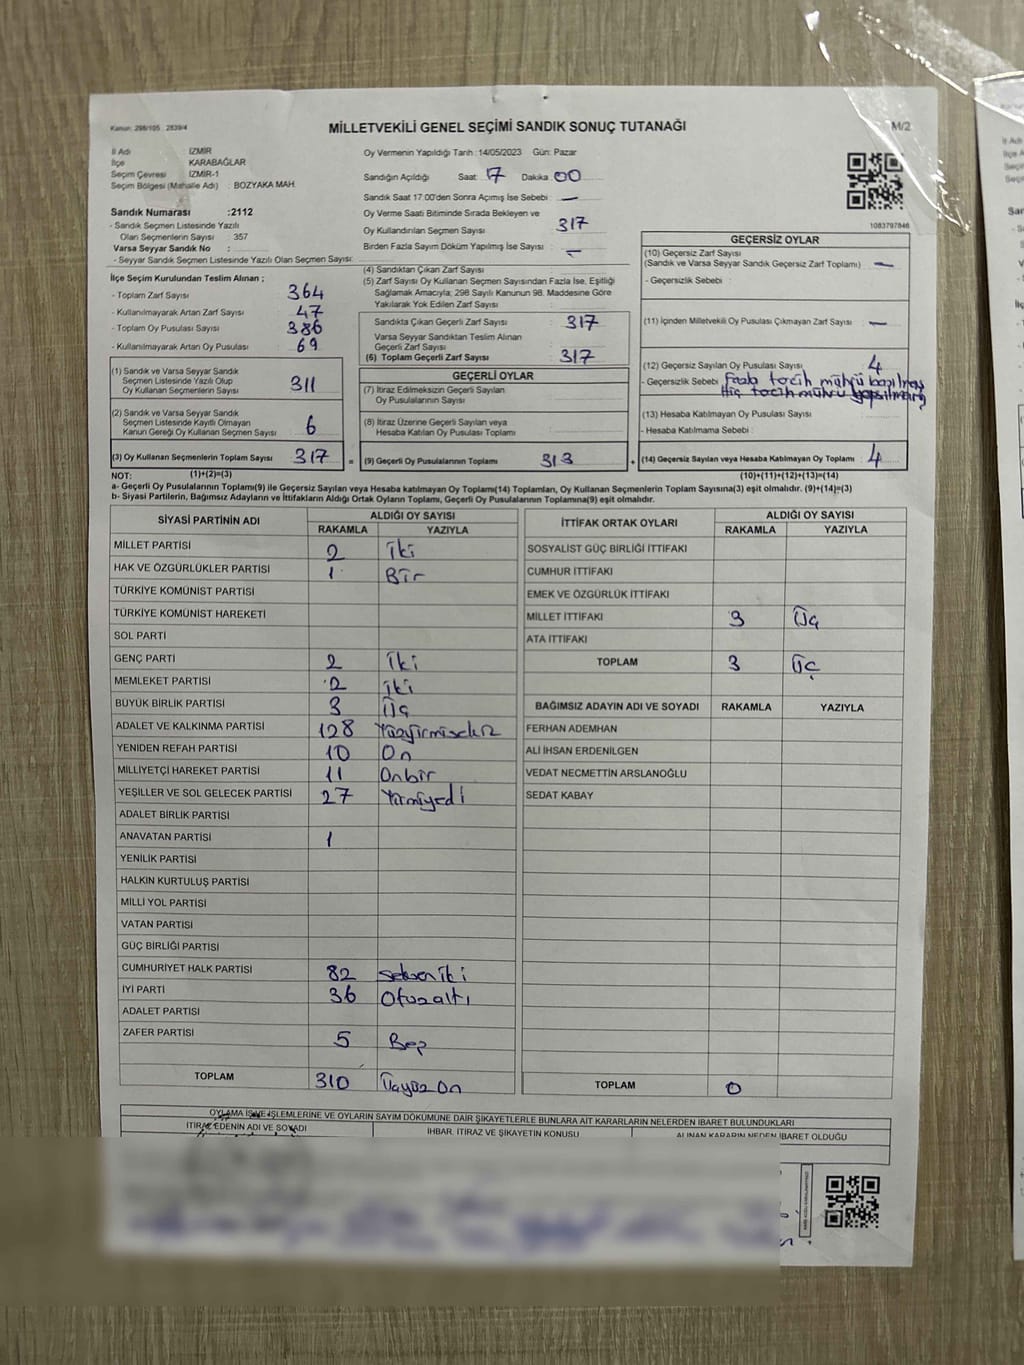 Kanun: 298/105 2839/4
MİLLETVEKİLİ GENEL SEÇİMİ SANDIK SONUÇ TUTANAĞI
M/2
İl Adı İZMİR
İlçe KARABAĞLAR
Seçim Çevresi İZMİR-1
Seçim Bölgesi (Mahalle Adı) : BOZYAKA MAH.
Sandık Numarası :2112
- Sandık Seçmen Listesinde Yazılı
Olan Seçmenlerin Sayısı : 357
Varsa Seyyar Sandık No :
- Seyyar Sandık Seçmen Listesinde Yazılı Olan Seçmen Sayısı:
Oy Vermenin Yapıldığı Tarih : 14/05/2023 Gün: Pazar
Sandığın Açıldığı Saat: 17 Dakika: 00
Sandık Saat 17.00'den Sonra Açımış İse Sebebi : —
Oy Verme Saati Bitiminde Sırada Bekleyen ve
Oy Kullandırılan Seçmen Sayısı : 317
Birden Fazla Sayım Döküm Yapılmış İse Sayısı : —
1083797846
İlçe Seçim Kurulundan Teslim Alınan ;
- Toplam Zarf Sayısı 364
- Kullanılmayarak Artan Zarf Sayısı : 47
- Toplam Oy Pusulası Sayısı : 386
- Kullanılmayarak Artan Oy Pusulası : 69
(1) Sandık ve Varsa Seyyar Sandık
Seçmen Listesinde Yazılı Olup
Oy Kullanan Seçmenlerin Sayısı : 311
(2) Sandık ve Varsa Seyyar Sandık
Seçmen Listesinde Kayıtlı Olmayan
Kanun Gereği Oy Kullanan Seçmen Sayısı : 6
(3) Oy Kullanan Seçmenlerin Toplam Sayısı : 317
(1)+(2)=(3)
(4) Sandıktan Çıkan Zarf Sayısı :
(5) Zarf Sayısı Oy Kullanan Seçmen Sayısından Fazla İse, Eşitliği
Sağlamak Amacıyla; 298 Sayılı Kanunun 98. Maddesine Göre
Yakılarak Yok Edilen Zarf Sayısı :
Sandıkta Çıkan Geçerli Zarf Sayısı : 317
Varsa Seyyar Sandıktan Teslim Alınan
Geçerli Zarf Sayısı :
(6) Toplam Geçerli Zarf Sayısı : 317
GEÇERLİ OYLAR
(7) İtiraz Edilmeksizin Geçerli Sayılan
Oy Pusulalarının Sayısı :
(8) İtiraz Üzerine Geçerli Sayılan veya
Hesaba Katılan Oy Pusulası Toplamı :
= (9) Geçerli Oy Pusulalarının Toplamı : 313
GEÇERSİZ OYLAR
(10) Geçersiz Zarf Sayısı
(Sandık ve Varsa Seyyar Sandık Geçersiz Zarf Toplamı) : —
- Geçersizlik Sebebi
(11) İçinden Milletvekili Oy Pusulası Çıkmayan Zarf Sayısı : —
(12) Geçersiz Sayılan Oy Pusulası Sayısı : 4
- Geçersizlik Sebebi : Fazla tercih mührü basılması
Hiç tercih mührü
(13) Hesaba Katılmayan Oy Pusulası Sayısı :
- Hesaba Katılmama Sebebi :
+ (14) Geçersiz Sayılan veya Hesaba Katılmayan Oy Toplamı : 4
(10)+(11)+(12)+(13)=(14)
NOT:
a- Geçerli Oy Pusulalarının Toplamı(9) ile Geçersiz Sayılan veya Hesaba katılmayan Oy Toplamı(14) Toplamları, Oy Kullanan Seçmenlerin Toplam Sayısına(3) eşit olmalıdır. (9)+(14)=(3)
b- Siyasi Partilerin, Bağımsız Adayların ve İttifakların Aldığı Ortak Oyların Toplamı, Geçerli Oy Pusulalarının Toplamına(9) eşit olmalıdır.
SİYASİ PARTİNİN ADI ALDIĞI OY SAYISI
RAKAMLA YAZIYLA
MİLLET PARTİSİ 2 İki
HAK VE ÖZGÜRLÜKLER PARTİSİ 1 Bir
TÜRKİYE KOMÜNİST PARTİSİ
TÜRKİYE KOMÜNİST HAREKETİ
SOL PARTİ
GENÇ PARTİ 2 İki
MEMLEKET PARTİSİ 2 İki
BÜYÜK BİRLİK PARTİSİ 3 Üç
ADALET VE KALKINMA PARTİSİ 128 Yüzyirmisekiz
YENİDEN REFAH PARTİSİ 10 On
MİLLİYETÇİ HAREKET PARTİSİ 11 Onbir
YEŞİLLER VE SOL GELECEK PARTİSİ 27 Yirmiyedi
ADALET BİRLİK PARTİSİ
ANAVATAN PARTİSİ 1
YENİLİK PARTİSİ
HALKIN KURTULUŞ PARTİSİ
MİLLİ YOL PARTİSİ
VATAN PARTİSİ
GÜÇ BİRLİĞİ PARTİSİ
CUMHURİYET HALK PARTİSİ 82 Sekseniki
İYİ PARTİ 36 Otuzaltı
ADALET PARTİSİ
ZAFER PARTİSİ 5 Beş
TOPLAM 310 Üçyüz On
İTTİFAK ORTAK OYLARI ALDIĞI OY SAYISI
RAKAMLA YAZIYLA
SOSYALİST GÜÇ BİRLİĞİ İTTİFAKI
CUMHUR İTTİFAKI
EMEK VE ÖZGÜRLÜK İTTİFAKI
MİLLET İTTİFAKI 3 Üç
ATA İTTİFAKI
TOPLAM 3 Üç
BAĞIMSIZ ADAYIN ADI VE SOYADI RAKAMLA YAZIYLA
FERHAN ADEMHAN
ALİ İHSAN ERDENİLGEN
VEDAT NECMETTİN ARSLANOĞLU
SEDAT KABAY
TOPLAM 0
OYLAMA İŞ VE İŞLEMLERİNE VE OYLARIN SAYIM DÖKÜMÜNE DAİR ŞİKAYETLERLE BUNLARA AİT KARARLARIN NELERDEN İBARET BULUNDUKLARI
İTİRAZ EDENİN ADI VE SOYADI İHBAR, İTİRAZ VE ŞİKAYETİN KONUSU ALINAN KARARIN NEDEN İBARET OLDUĞU